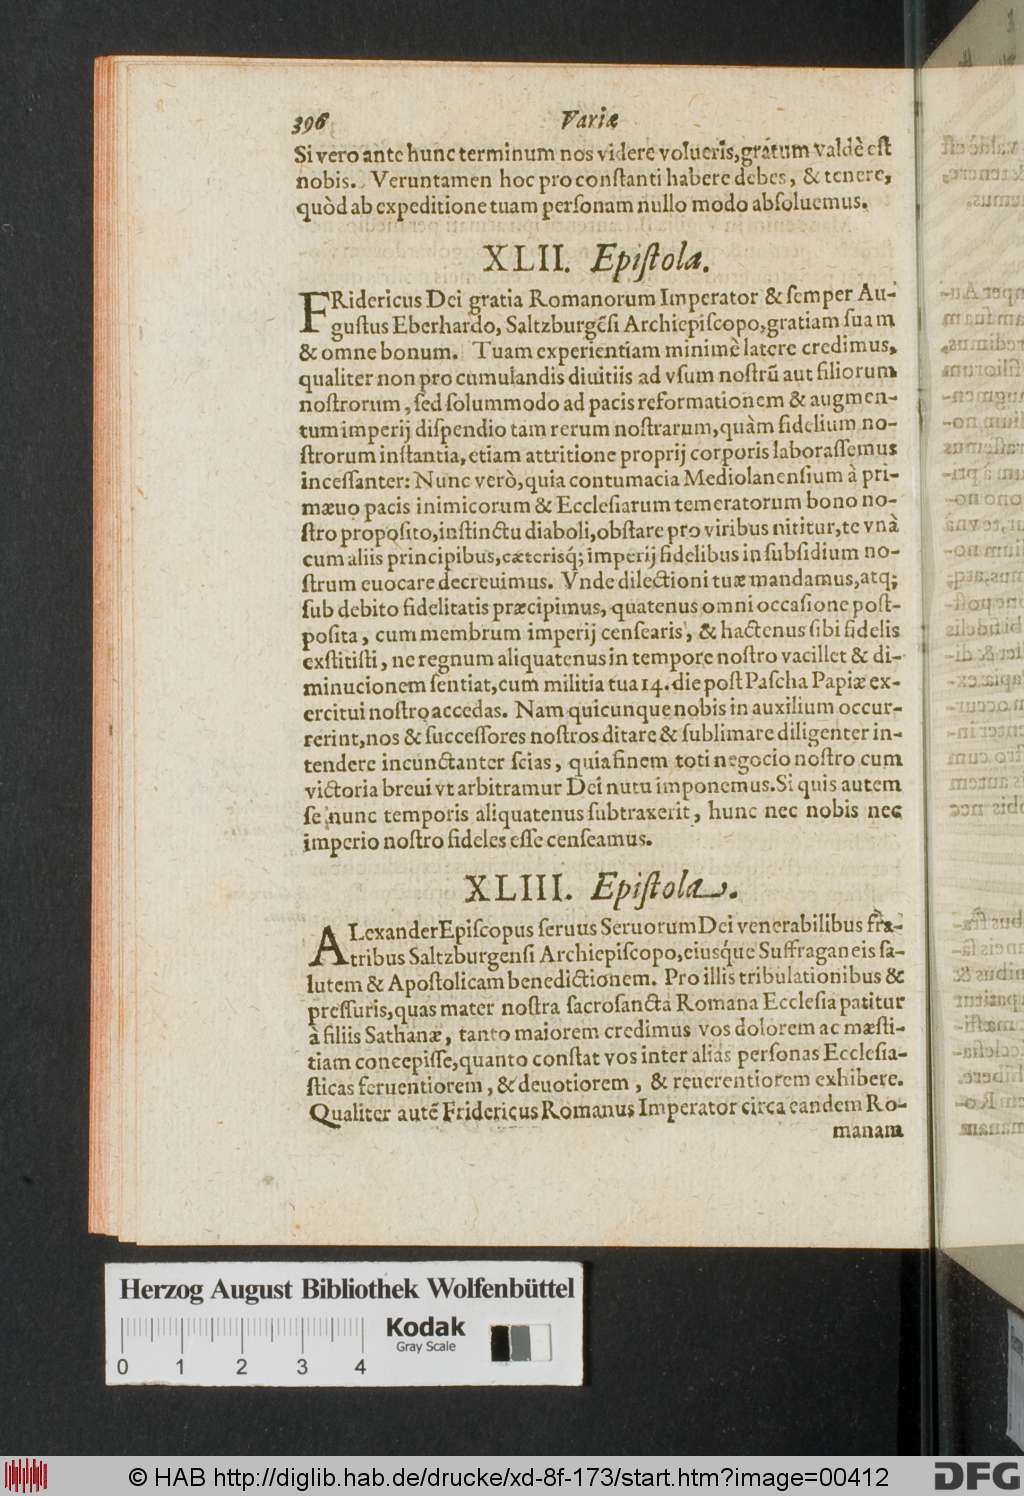 396 Variæ
Si vero ante hunc terminum nos videre volueris, gratum valdè est
nobis. Veruntamen hoc pro constanti habere debes, & tenere,
quòd ab expeditione tuam personam nullo modo absoluemus.
XLII. Epistola.
FRidericus Dei gratia Romanorum Imperator & semper Au-
gustus Eberhardo, Saltzburgẽsi Archiepiscopo, gratiam suam
& omne bonum. Tuam experientiam minimè latere credimus,
qualiter non pro cumulandis diuitiis ad vsum nostrũ aut filiorum
nostrorum, sed solummodo ad pacis reformationem & augmen-
tum imperij dispendio tam rerum nostrarum, quàm fidelium no-
strorum instantia, etiam attritione proprij corporis laborassemus
incessanter: Nunc verò, quia contumacia Mediolanensium à pri-
mæuo pacis inimicorum & Ecclesiarum temeratorum bono no-
stro proposito, instinctu diaboli, obstare pro viribus nititur, te vnà
cum aliis principibus, cæterisq́; imperij fidelibus in subsidium no-
strum euocare decreuimus. Vnde dilectioni tuæ mandamus, atq;
sub debito fidelitatis præcipimus, quatenus omni occasione post-
posita, cum membrum imperij censearis, & hactenus sibi fidelis
exstitisti, ne regnum aliquatenus in tempore nostro vacillet & di-
minucionem sentiat, cum militia tua 14. die post Pascha Papiæ ex-
ercitui nostro accedas. Nam quicunque nobis in auxilium occur-
rerint, nos & successores nostros ditare & sublimare diligenter in-
tendere incunctanter scias, quia finem toti negocio nostro cum
victoria breui vt arbitramur Dei nutu imponemus. Si quis autem
se nunc temporis aliquatenus subtraxerit, hunc nec nobis nec
imperio nostro fideles esse censeamus.
XLIII. Epistola.
ALexander Episcopus seruus Seruorum Dei venerabilibus fra-
tribus Saltzburgensi Archiepiscopo, eiusq́ue Suffraganeis sa-
lutem & Apostolicam benedictionem. Pro illis tribulationibus &
pressuris, quas mater nostra sacrosancta Romana Ecclesia patitur
à filiis Sathanæ, tanto maiorem credimus vos dolorem ac mæsti-
tiam concepisse, quanto constat vos inter alias personas Ecclesia-
sticas feruentiorem, & deuotiorem, & reuerentiorem exhibere.
Qualiter autẽ Fridericus Romanus Imperator circa eandem Ro-
manam
Herzog August Bibliothek Wolfenbüttel
Kodak
Gray Scale
0 1 2 3 4
© HAB http://diglib.hab.de/drucke/xd-8f-173/start.htm?image=00412
DFG